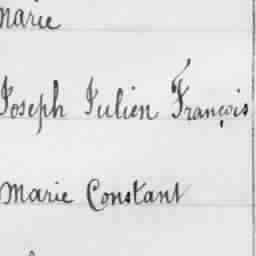 Marie
Joseph Julien François
Marie Constant